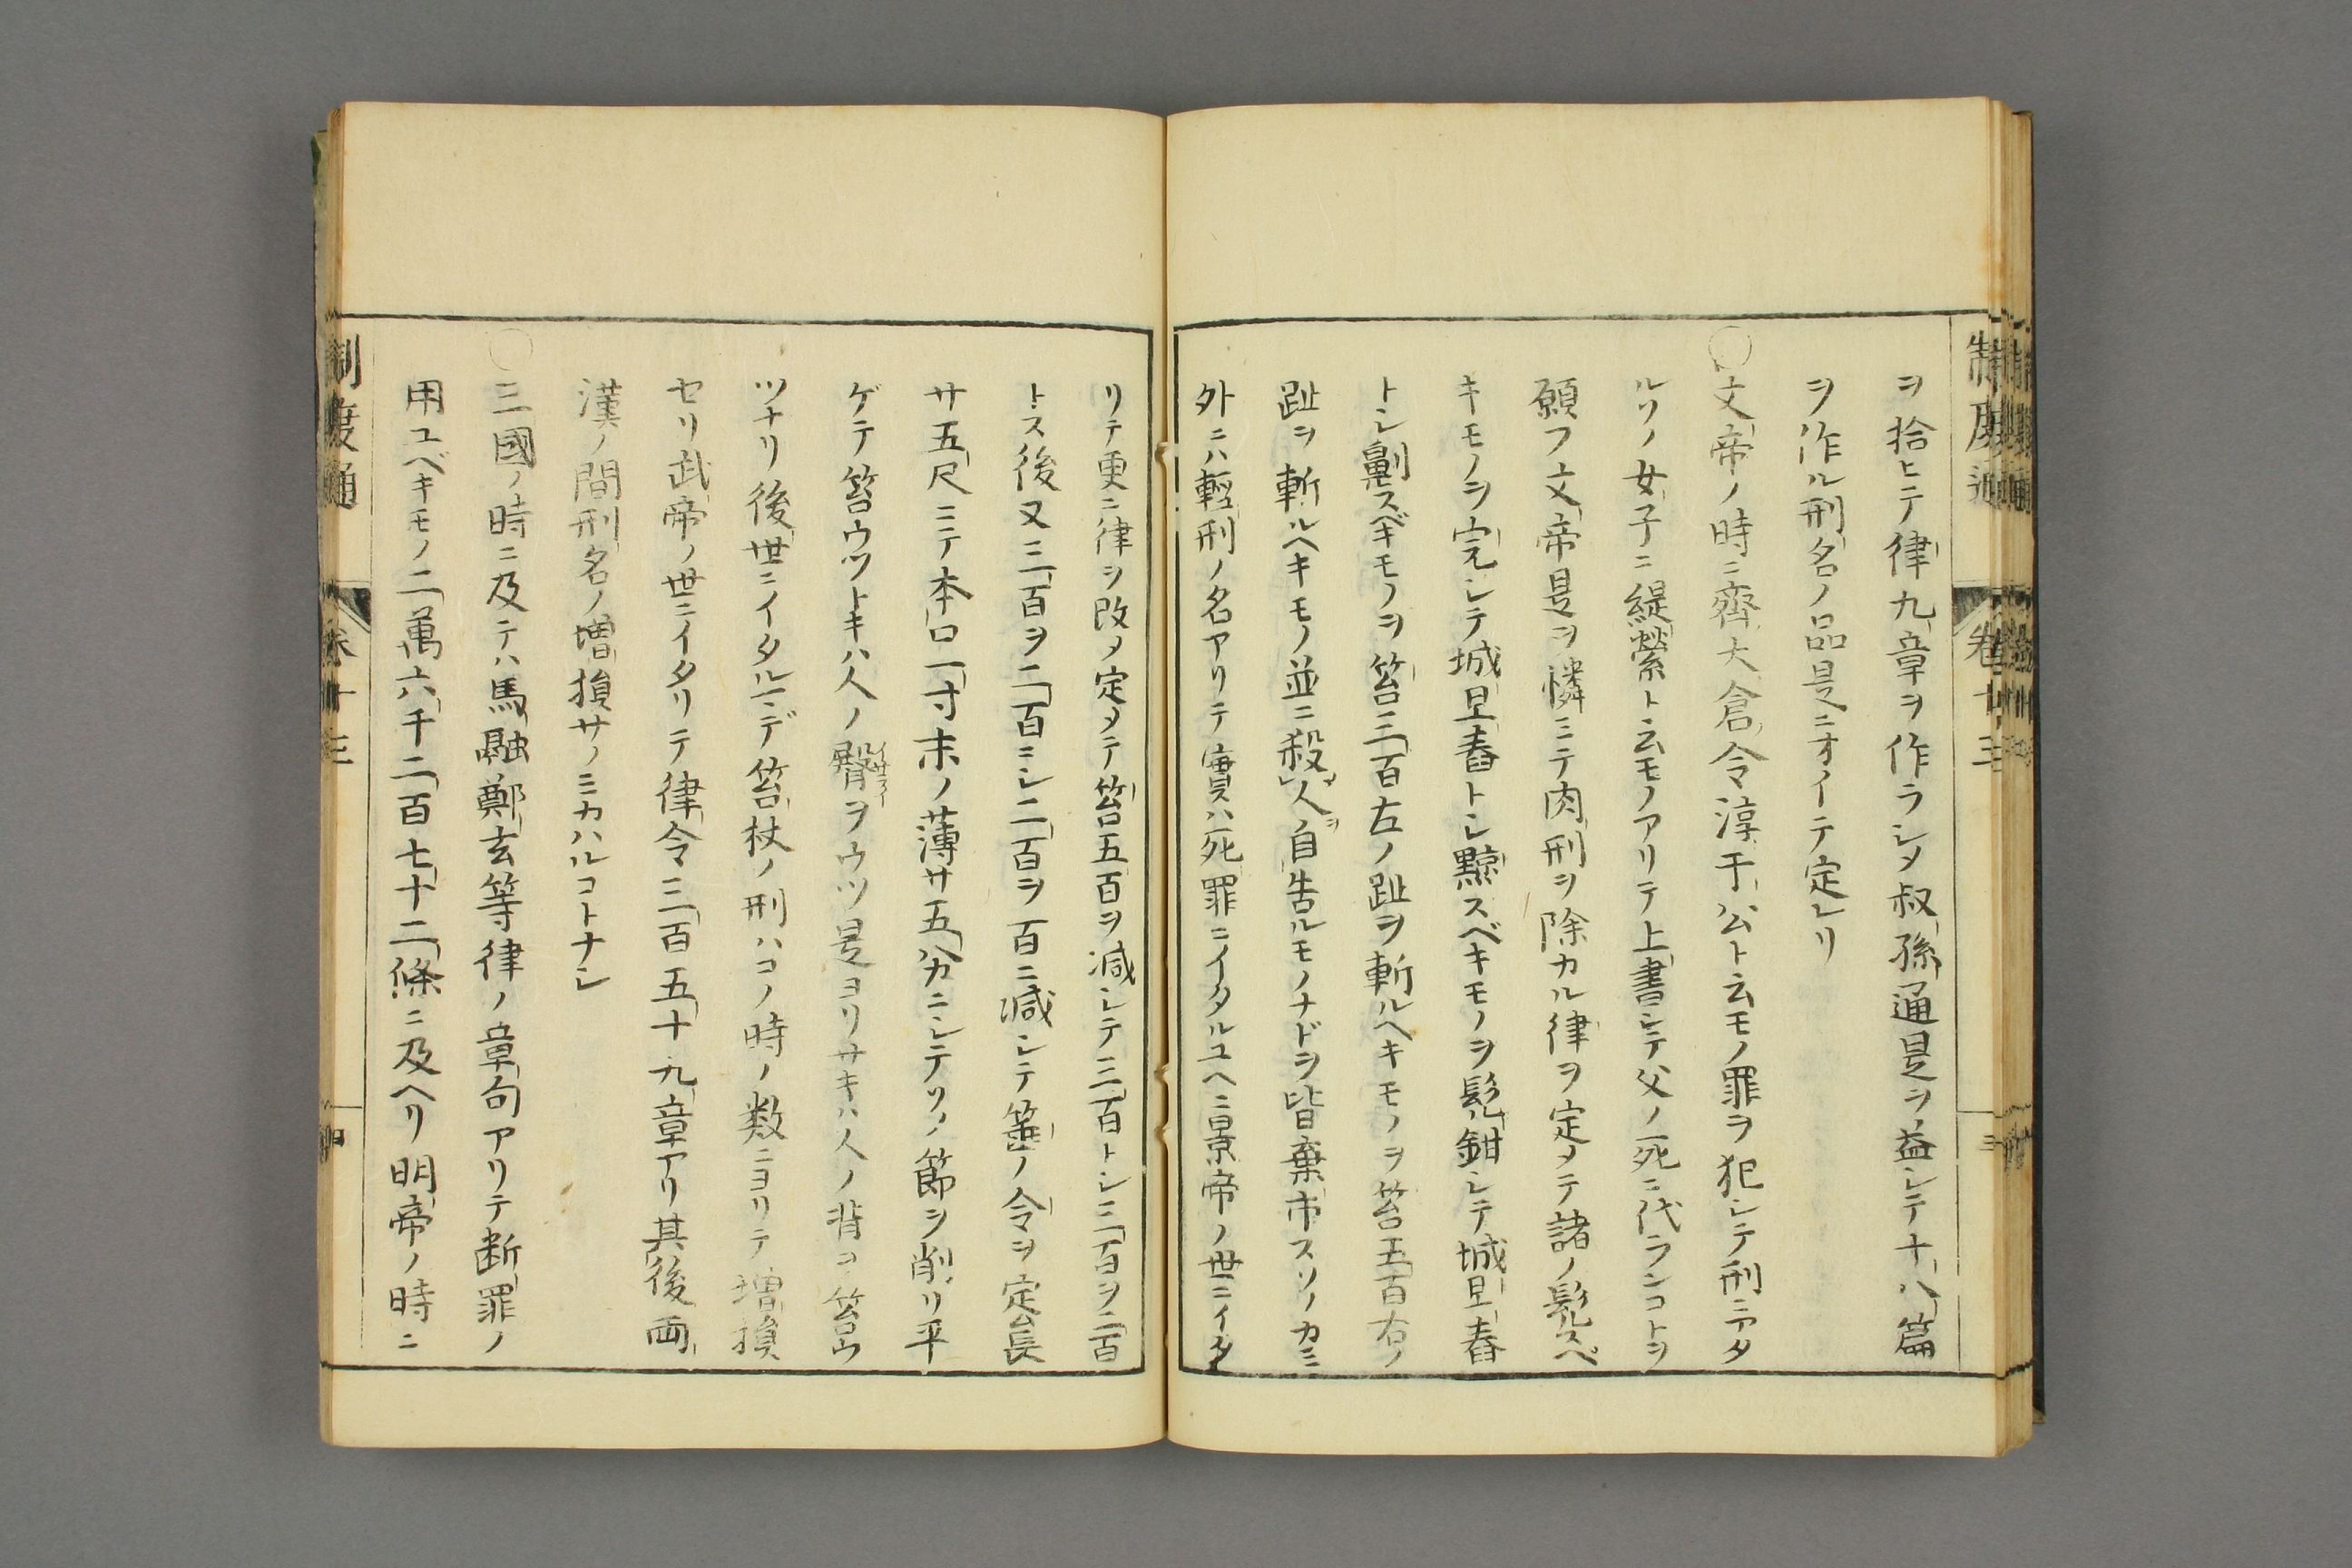 制度通
卷十三
三
ヲ拾ヒテ律九章ヲ作ラシメ叔孫通是ヲ益シテ十八篇
ヲ作ル刑名ノ品是ニオイテ定レリ
○文帝ノ時ニ齊大倉令淳于公ト云モノ罪ヲ犯シテ刑ニアタ
ルソノ女子ニ緹縈ト云モノアリテ上書シテ父ノ死ニ代ランコトヲ
願フ文帝是ヲ憐ミテ肉刑ヲ除カル律ヲ定メテ諸ノ髠スベ
キモノヲ完シテ城旦舂トシ黥スベキモノヲ髠鉗シテ城旦舂
トシ劓スベキモノヲ笞三百左ノ趾ヲ斬ルヘキモノヲ笞五百右ノ
趾ヲ斬ルヘキモノ並ニ殺人ヲ自告ルモノナドヲ皆棄市スソノカミ
外ニハ輕刑ノ名アリテ實ハ死罪ニイタルユヘニ景帝ノ世ニイタ
リテ更ニ律ヲ改メ定メテ笞五百ヲ減シテ三百トシ三百ヲ二百
トス後又三百ヲ二百ニシ二百ヲ百ニ減シテ箠ノ令ヲ定ム長
サ五尺ニテ本口一寸末ノ薄サ五分ニシテソノ節ヲ削リ平
ゲテ笞ウツトキハ人ノ臀ヲウツ是ヨリサキハ人ノ背ヲ笞ウ
ツナリ後世ニイタルマデ笞杖ノ刑ハコノ時ノ数ニヨリテ増損
セリ武帝ノ世ニイタリテ律令三百五十九章アリ其後両
漢ノ間刑名ノ増損サノミカハルコトナシ
○三國ノ時ニ及テハ馬融鄭玄等律ノ章句アリテ断罪ノ
用ユベキモノ二萬六千二百七十二條ニ及ヘリ明帝ノ時ニ
制度通
卷十三
四